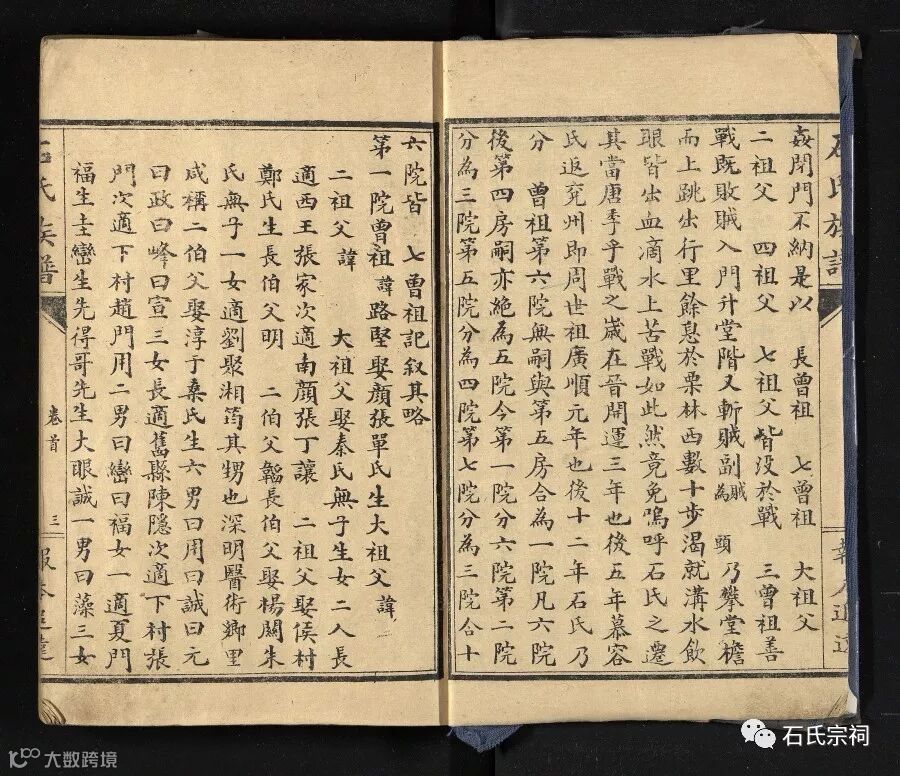 石氏族譜
姦閉門不納是以　長曾祖　七曾祖　大祖父
二祖父　四祖父　七祖父皆没於戰　三曾祖善
戰既敗賊入門升堂階又斬賊副賊為頭乃攀堂檐
而上跳出行里餘息於栗林西數十步渴就溝水飲
眼皆出血滴水上苦戰如此然竟免嗚呼石氏之遷
其當唐季乎戰之歲在晉開運三年也後五年慕容
氏返兖州即周世祖廣順元年也後十二年石氏乃
分　曾祖第六院無嗣與第五房合為一院凡六院
後第四房嗣亦絕為五院今第一院分六院第二院
分為三院第五院分為四院第七院分為三院合十
六院皆　七曾祖記叙其略
第一院曾祖　諱路堅娶顏張單氏生大祖父　諱
二祖父　諱　大祖父娶秦氏無子生女二人長
適西王張家次適南顏張丁讓　二祖父娶侯村
鄭氏生長伯父明　二伯父韜長伯父娶楊闕朱
氏無子一女適劉聚湘筠其甥也深明醫術鄉里
咸稱二伯父娶淳于桑氏生六男曰周曰誠曰元
曰政曰峰曰宣三女長適舊縣陳隱次適下村張
門次適下村趙門用二男曰巒曰福女一適夏門
福生圭巒生先得哥先生大眼誠一男曰藻三女
石氏族譜
卷首
三
報本追遠
大数跨境
石氏宗祠